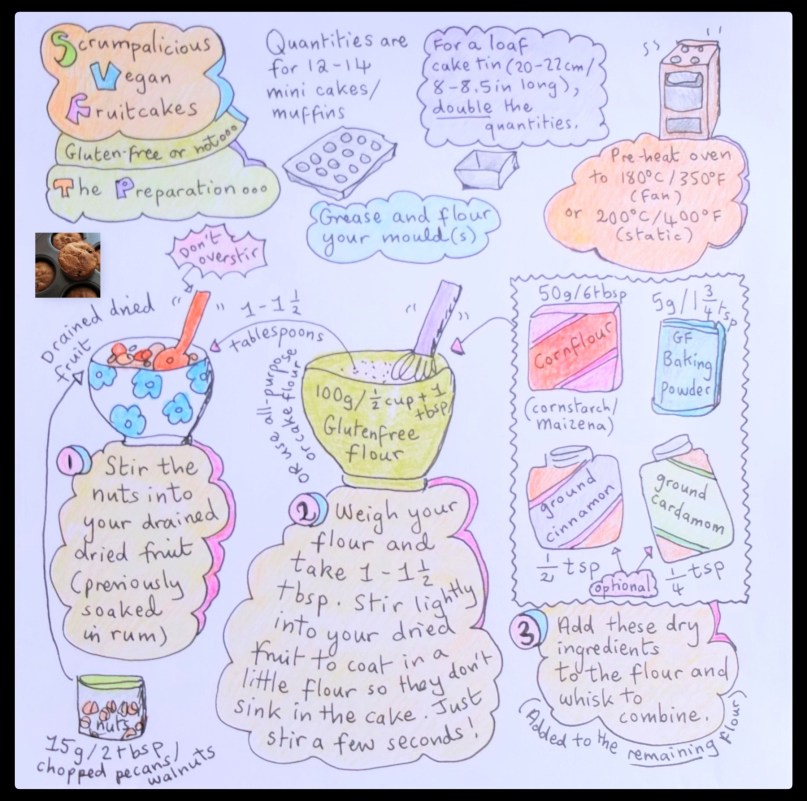 Scrumpalicious
Vegan
Fruitcakes
Gluten-free or not...
The Preparation...
Quantities are
for 12-14
mini cakes/
muffins
For a loaf
cake tin (20-22cm/
8-8.5in long),
double the
quantities.
Grease and flour
your mould(s)
Pre-heat oven
to 180°C/350°F
(fan)
or 200°C/400°F
(static)
Don't
overstir
Drained dried
fruit
1-1½
tablespoons
OR use all-purpose
or cake flour
100g/½ cup+1
tbsp
Glutenfree
flour
50g/6tbsp
Cornflour
(cornstarch/
Maizena)
5g/1¾tsp
GF
Baking
Powder
ground
cinnamon
½ tsp
ground
cardamom
¼ tsp
optional
1 Stir the
nuts into
your drained
dried fruit
(previously
soaked
in rum)
nuts
15g/2tbsp
chopped pecans/
walnuts
2 Weigh your
flour and
take 1-1½
tbsp. Stir lightly
into your dried
fruit to coat in a
little flour so they don't
sink in the cake. Just
stir a few seconds!
3 Add these dry
ingredients
to the flour and
whisk to
combine.
(Added to the remaining flour)